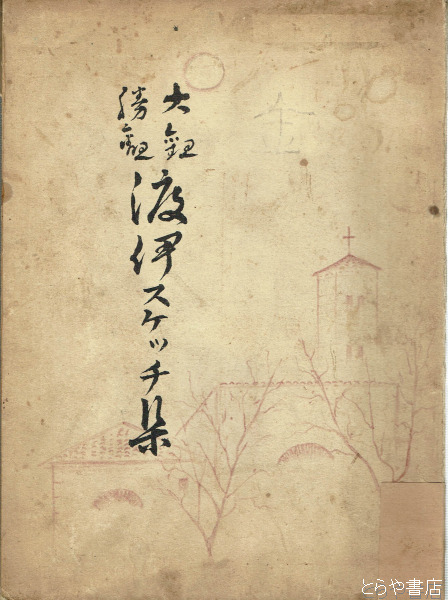 大観
勝観
渡伊スケッチ集
とらや書店